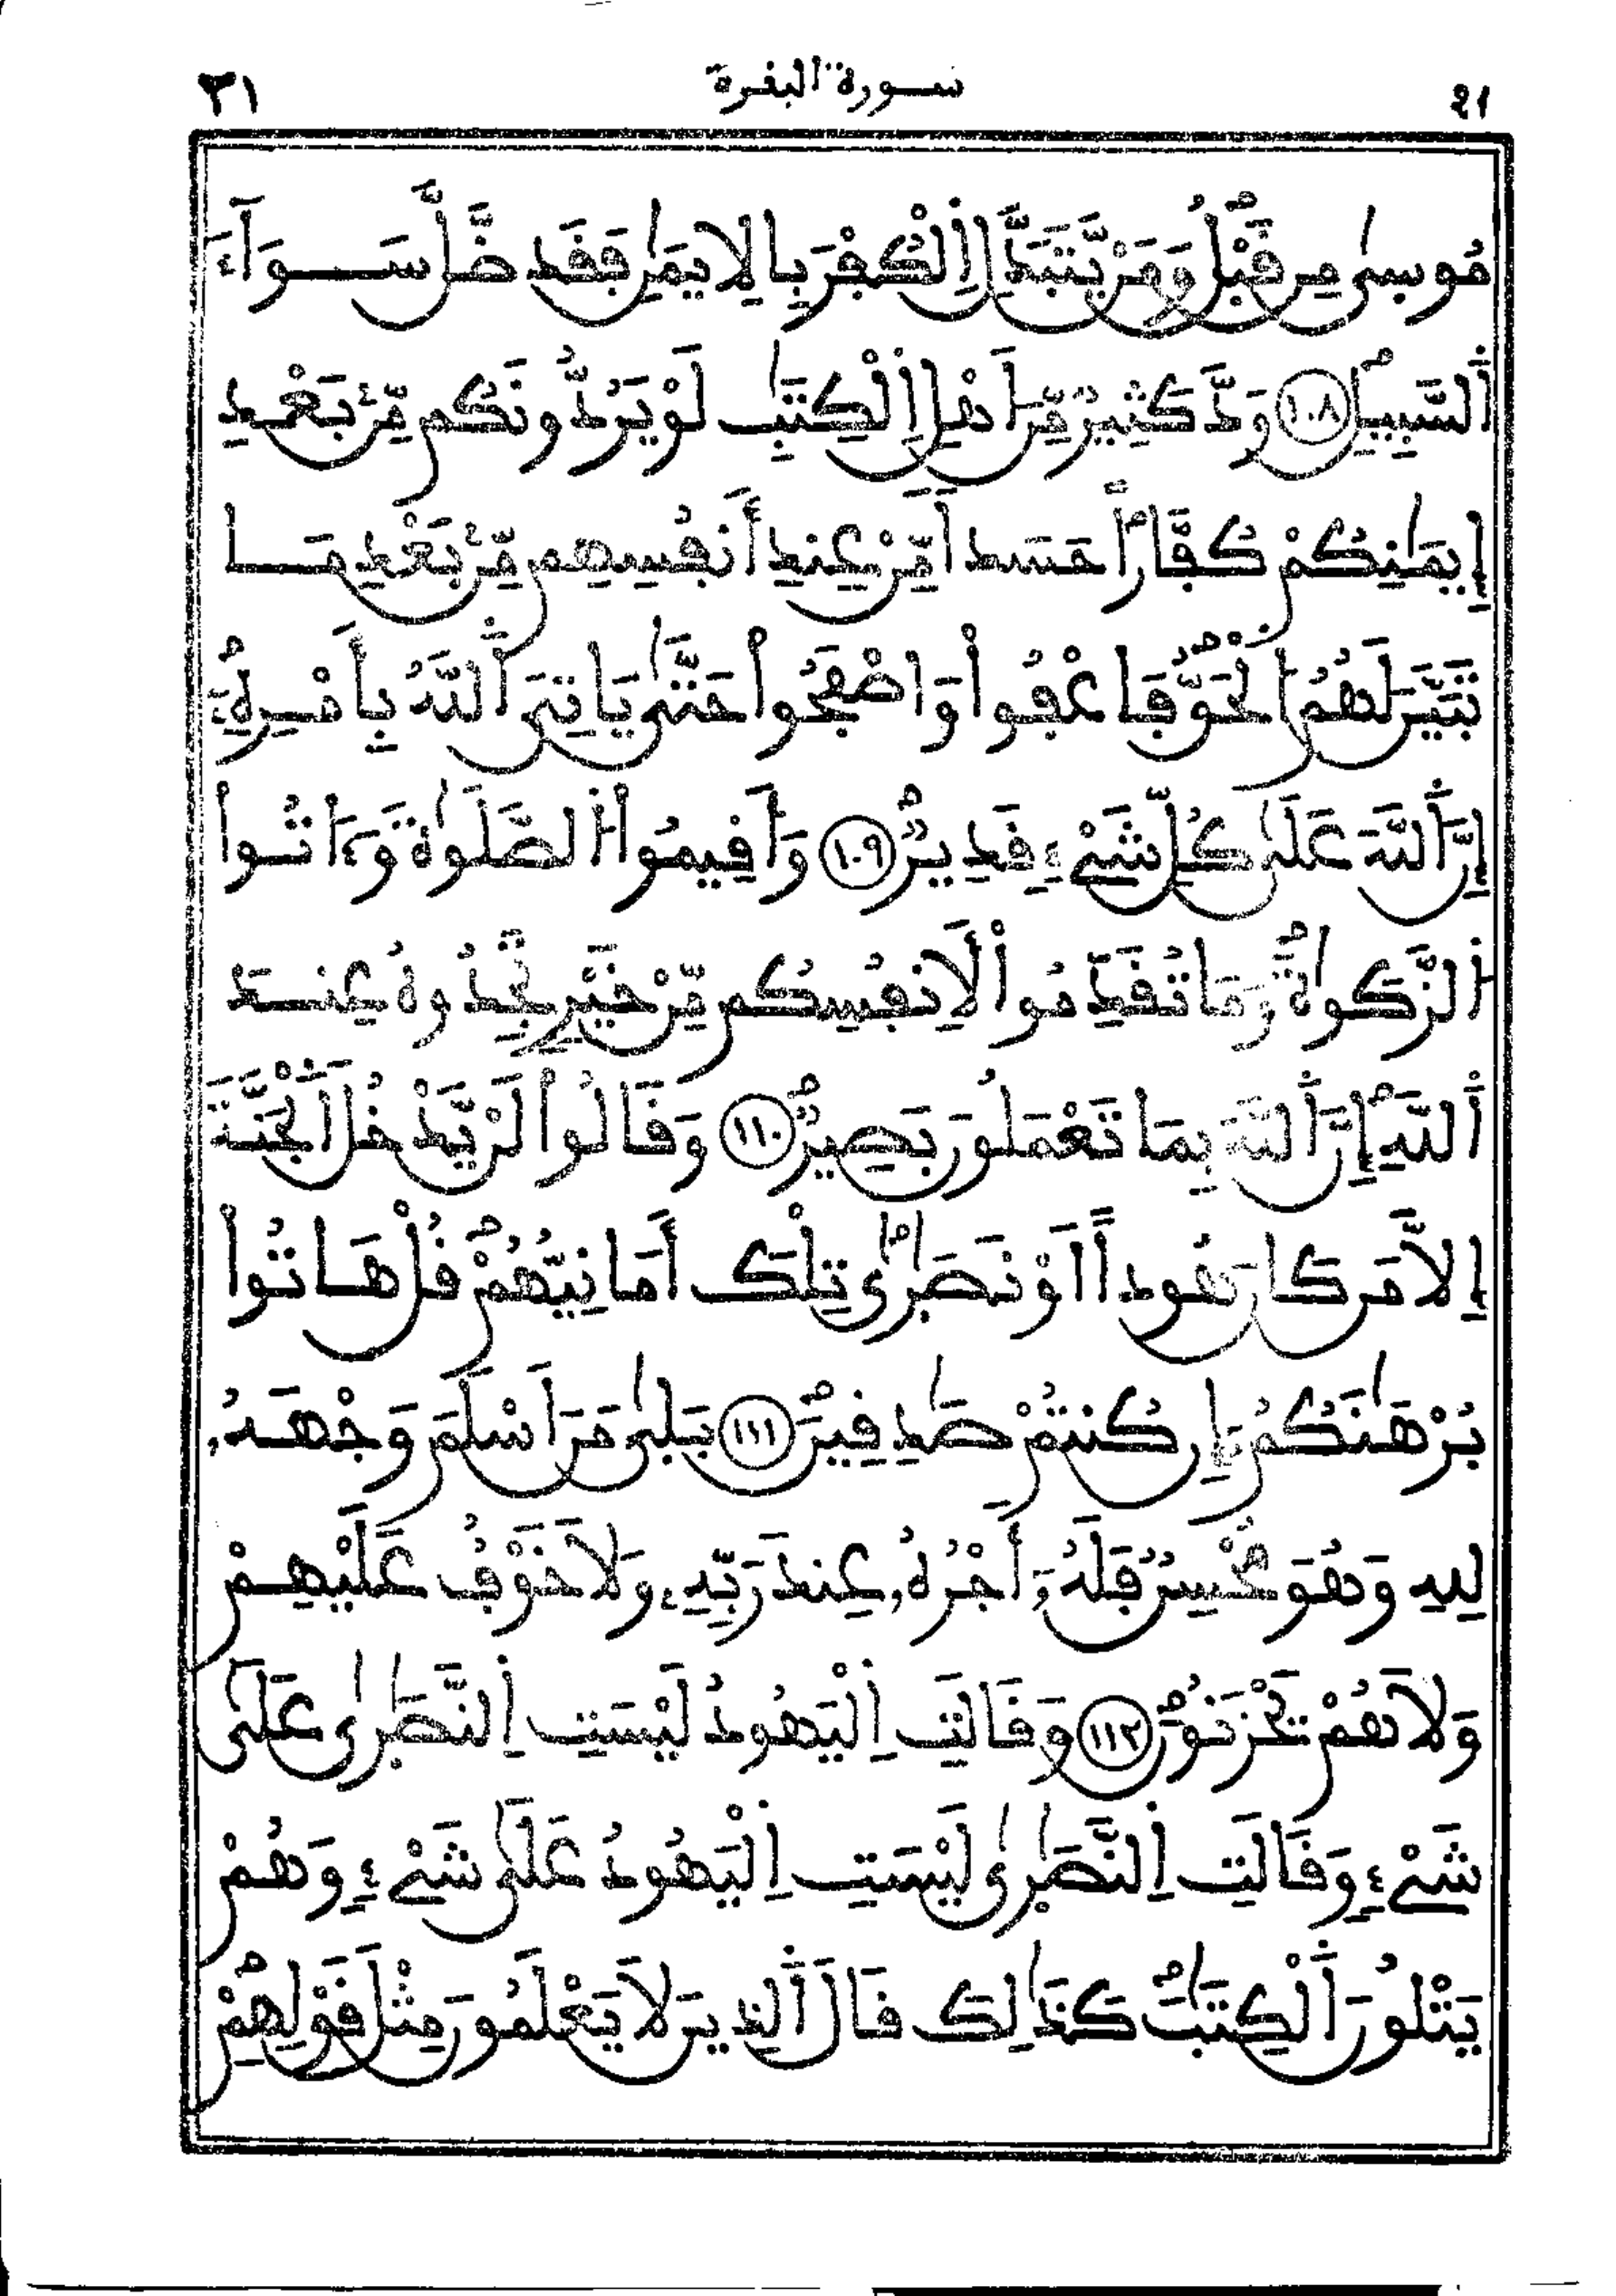 ٣١ سورة البقرة 21
مُوسىٰ مِن قَبْلُ وَمَنْ يَّتَبَدَّلِ اِلْكُفْرَ بِالِايمَٰنِ فَقَد ضَّلَّ سَوَآءَ
اَلسَّبِيلِ ١٠٨ وَدَّ كَثِيرٌ مِّنَ اَهْلِ اِلْكِتَٰبِ لَوْ يَرُدُّونَكُم مِّنۢ بَعْدِ
إِيمَٰنِكُمْ كُفَّاراً حَسَداً مِّنْ عِندِ أَنفُسِهِم مِّنۢ بَعْدِ مَا
تَبَيَّنَ لَهُمُ اُلْحَقُّ فَاعْفُواْ وَاصْفَحُواْ حَتَّىٰ يَاتِىَ اَللَّهُ بِأَمْرِهِۦٓ
إِنَّ اَللَّهَ عَلَىٰ كُلِّ شَىْءٍ قَدِيرٌ ١٠٩ وَأَقِيمُواْ اُلصَّلَوٰةَ وَءَاتُواْ
اُلزَّكَوٰةَ وَمَا تُقَدِّمُواْ لَأِنفُسِكُم مِّنْ خَيْرٍ تَجِدُوهُ عِندَ
اَللَّهِ إِنَّ اَللَّهَ بِمَا تَعْمَلُونَ بَصِيرٌ ١١٠ وَقَالُواْ لَنْ يَّدْخُلَ اَلْجَنَّةَ
إِلَّا مَن كَانَ هُوداً اَوْ نَصَٰرَىٰ تِلْكَ أَمَانِيُّهُمْ قُلْ هَاتُواْ
بُرْهَٰنَكُمُۥٓ إِن كُنتُمْ صَٰدِقِينَ ١١١ بَلَىٰ مَنَ اَسْلَمَ وَجْهَهُۥ
لِلهِ وَهُوَ مُحْسِنٌ فَلَهُۥٓ أَجْرُهُۥ عِندَ رَبِّهِۦ وَلَا خَوْفٌ عَلَيْهِمْ
وَلَا هُمْ يَحْزَنُونَ ١١٢ وَقَالَتِ اِلْيَهُودُ لَيْسَتِ اِلنَّصَٰرَىٰ عَلَىٰ
شَىْءٍ وَقَالَتِ اِلنَّصَٰرَىٰ لَيْسَتِ اِلْيَهُودُ عَلَىٰ شَىْءٍ وَهُمْ
يَتْلُونَ اَلْكِتَٰبَ كَذَٰلِكَ قَالَ اَلذِينَ لَا يَعْلَمُونَ مِثْلَ قَوْلِهِمْ